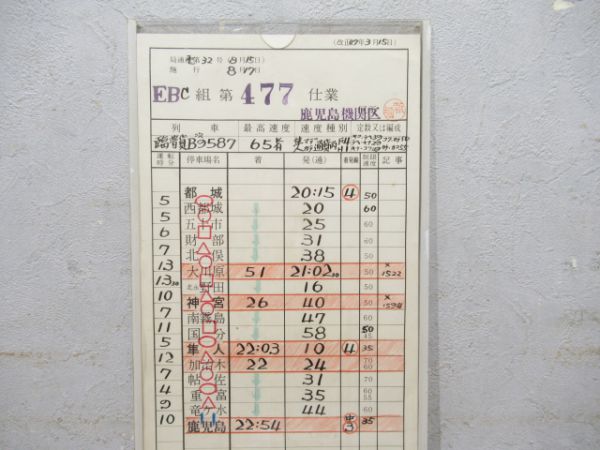 (改正 年3月15日)
局達 第32号 (8月15日)
施行 8月17日
EBC組 第477仕業
鹿児島機関区
列車 最高速度 速度種別 定数又は編成
9587 65
運転時分 停車場名 着 発(通) 着発線 制限速度 記事
都城 20:15 4 50
5 西都城 20 60
5 五十市 25 60
6 財部 31 60
7 北俣 38 60
13 大川原 51 21:02 50 × 1522
13 北永野田 16 50
10 神宮 26 40 50 ×
7 南霧島 47 60
11 国分 58 50
5 隼人 22:03 10 4 35
12 加治木 22 24 70 60
7 帖佐 31 70
4 重富 35 60 55
9 竜ケ水 44 60
10 鹿児島 22:54 中 35